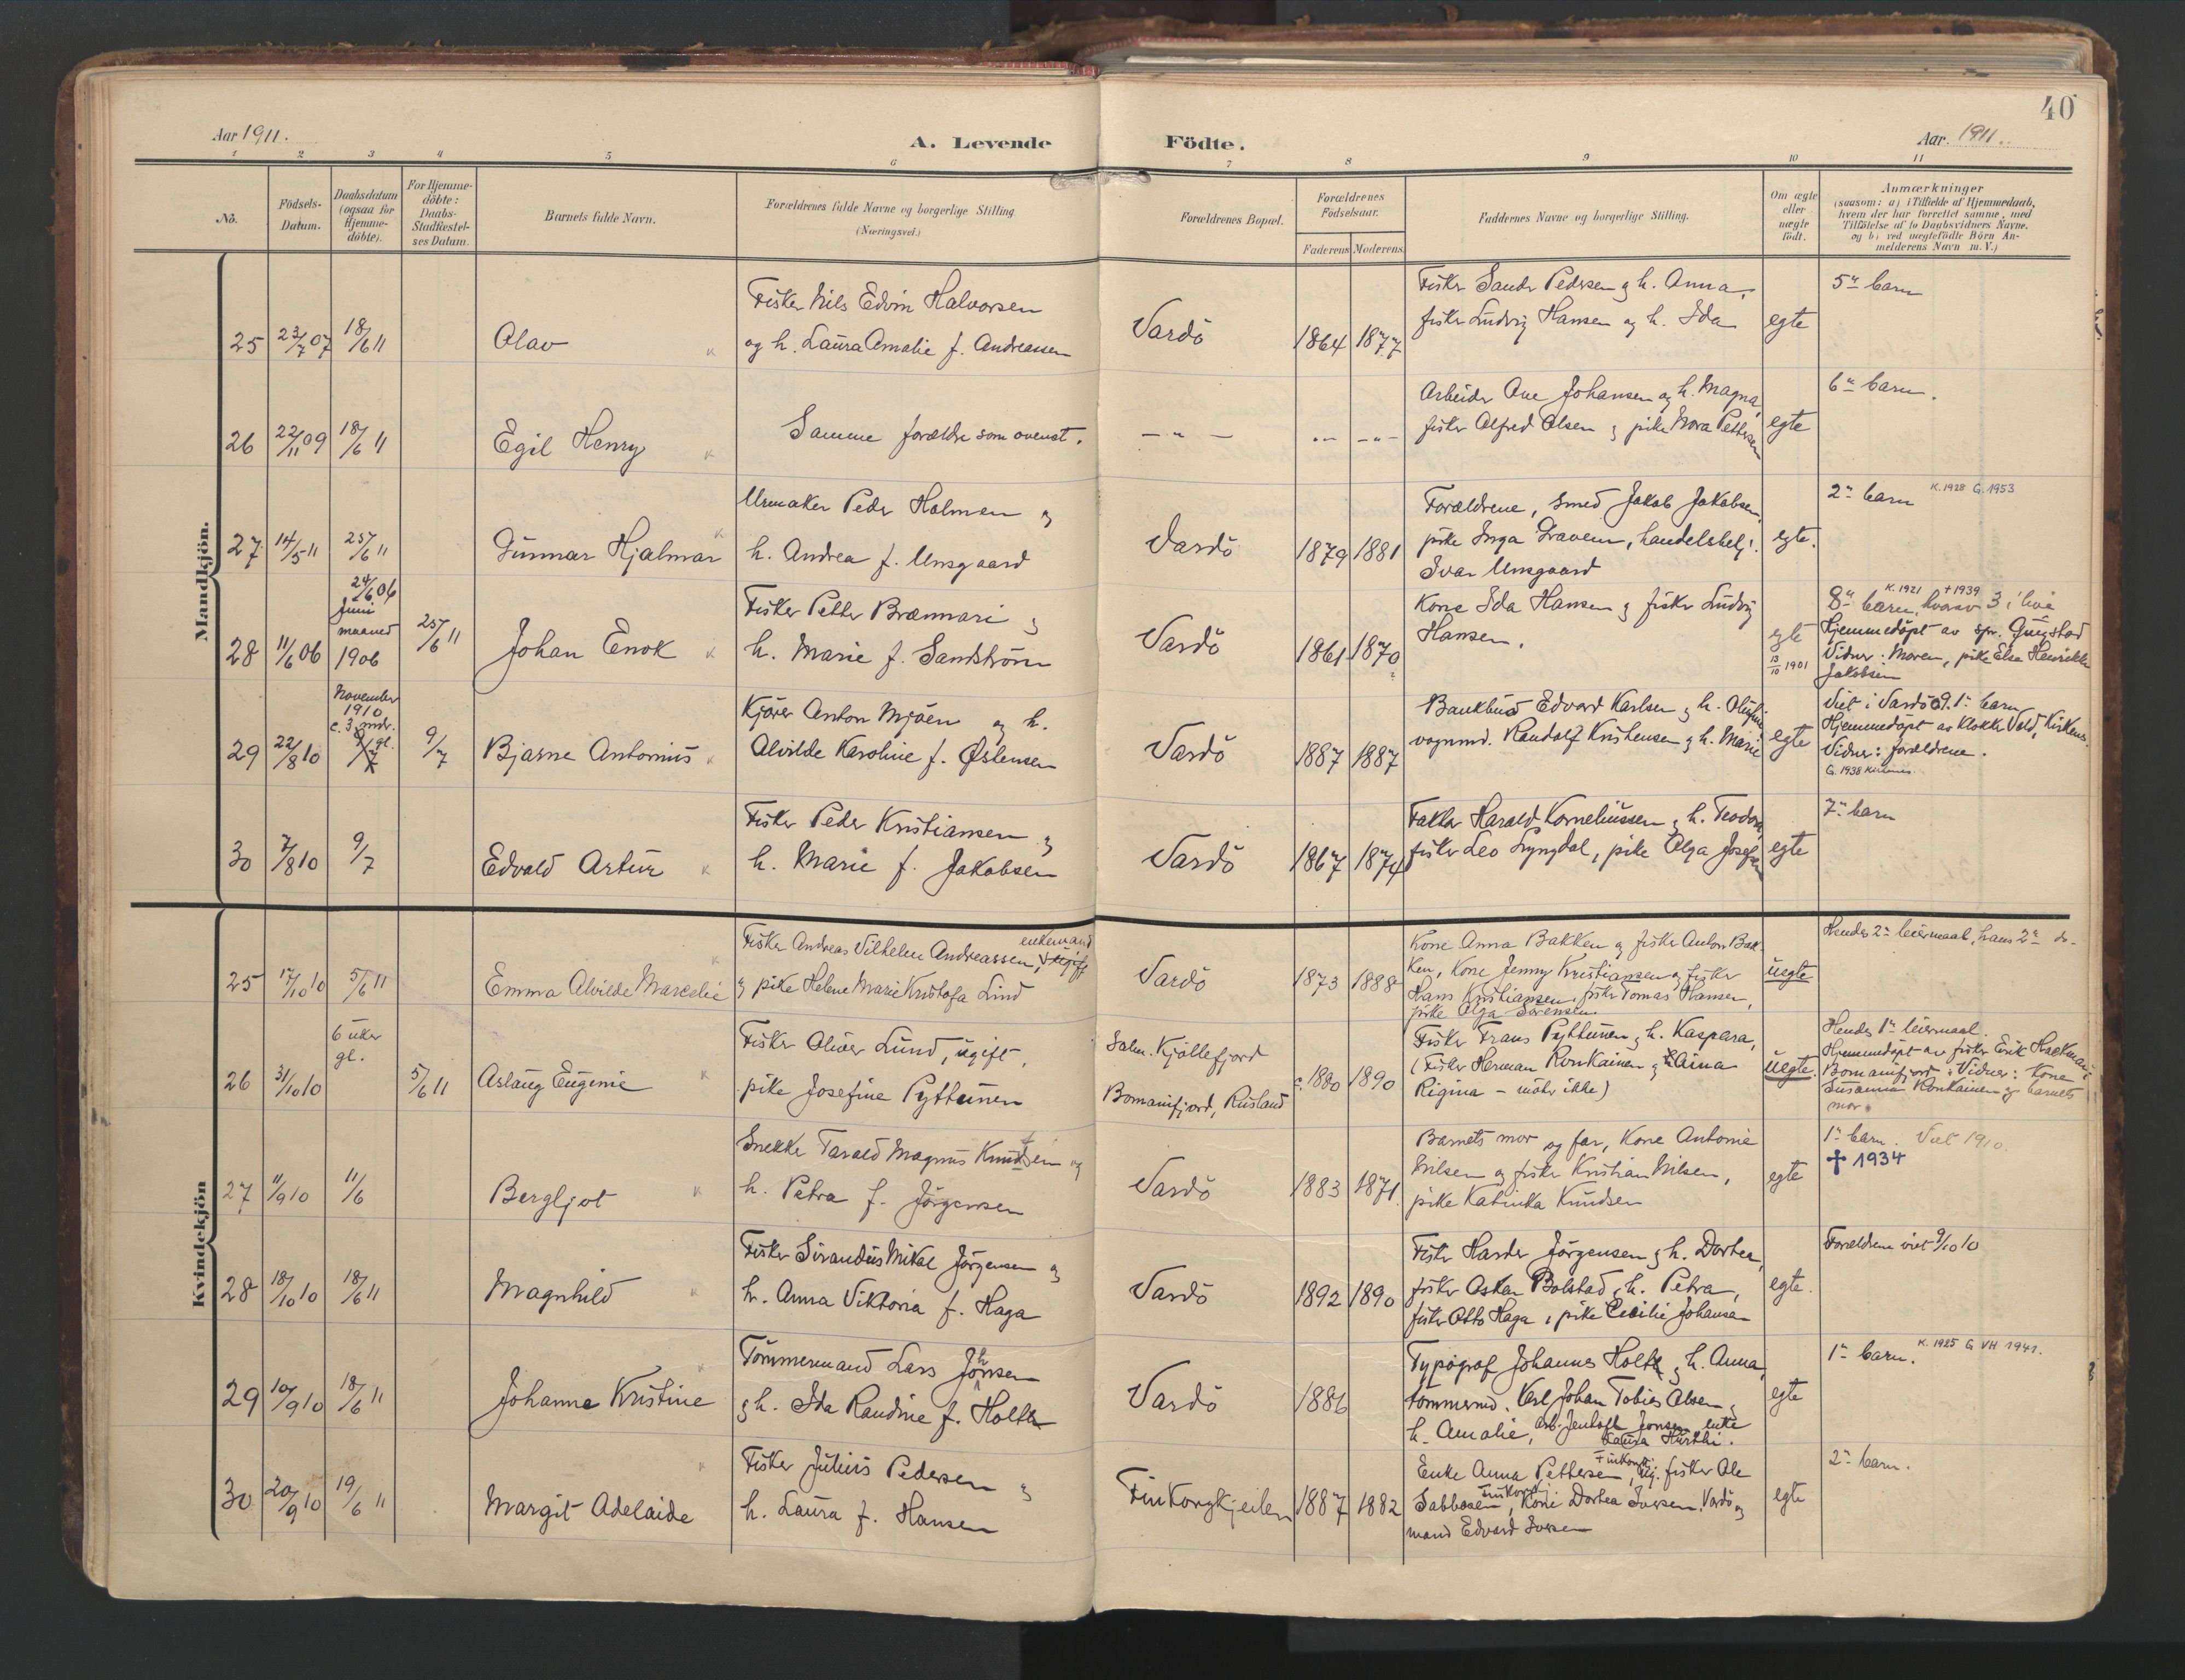 40
Aar 1911.
A. Levende
Födte.
Aar. 1911.
1 2 3 4 5 6 7 8 9 10 11
No.
Födsels-
Datum.
Daabsdatum
(ogsaa for
Hjemme-
döbte).
For Hjemme-
döbte:
Daabs-
Stadfæstel-
ses Datum.
Barnets fulde Navn.
Forældrenes fulde Navne og borgerlige Stilling
(Næringsvei.)
Forældrenes Bopæl.
Forældrenes
Födselsaar.
Faderens Moderens
Faddernes Navne og borgerlige Stilling.
Om ægte
eller
uægte
födt.
Anmærkninger
(saasom: a) i Tilfælde af Hjemmedaab,
hvem der har forrettet samme, med
Tilföielse af to Daabsvidners Navne.
og b) ved uægtefödte Börn An-
melderens Navn m. V.)
Mandkjön.
25 23/7 07 18/6 11
Olav
Fisker Nils Edvin Halvorsen
og h. Laura Amalie f. Andreassen
Vardö
1864 1877
Fisker Sander Pedersen og h. Anna,
fisker Ludvig Hansen og h. Ida
egte
5te barn
26 22/11 09 18/6 11
Egil Henry
Samme forældre som ovenst.
— " — " — " —
Arbeider Ove Johansen og h. Magna
fisker Alfred Olsen og pike Nora Pettersen
egte
6te barn.
27 14/5 11 25/6 11
Gunnar Hjalmar
Urmaker Peder Holmen og
h. Andrea f. Umsgaard
Vardö
1879 1881
Forældrene, smed Jakob Jakobsen,
pike Inga Gravem, handelsbetj.
Ivar Umsgaard
egte.
2et barn K. 1928 G. 1953
28 11/6 06
24/6 06
Juni
maaned
1906
25/6 11
Johan Enok
Fisker Petter Brænmari og
h. Marie f. Sandström
Vardö
1861 1870
Kone Ida Hansen og fisker Ludvig
Hansen.
egte
13/10 1901
K. 1921 † 1939
8de barn, hvorav 3 i live
Hjemmedöpt av spr. Gjugstad
Vidner: Moren, pike Elsa Henrikke
Jakobsen
29 22/8 10
November
1910
c. 3 mdr.
gl.
9/7
9/7
Bjarne Antonius
Kjörer Anton Mjöen og h.
Alvilde Karoline f. Østensen
Vardö
1887 1887
Bankbud Edvard Karlsen og h. Olufine
vognmd. Randolf Kristensen og h. Marie
egte
Viet i Vardö 09. 1te barn
Hjemmedöpt av klokker Vold, Kirkenes.
Vidner: forældrene.
G. 1938 Kirkenes.
30 7/8 10 9/7
Edvald Artur
Fisker Peder Kristiansen og
h. Marie f. Jakobsen
Vardö
1867 1874
Faktor Harald Korneliussen og h. Teodora,
fisker Leo Lyngdal, pike Olga Josefsen
egte
7de barn
Kvindekjön
25 17/10 10 5/6 11
Emma Alvilde Mareslie
Fisker Andreas Vilhelm Andreassen, enkemand ugift
og pike Helene Marie Kristofa Lind
Vardö
1873 1888
Kone Anna Bakken og fisker Anton Bak-
ken, Kone Jenny Kristiansen og fisker
Hans Kristiansen, fisker Tomas Hansen,
pike Olga Sörensen.
uegte
Hendes 2et leiermaal, hans 2et do.
26 31/10 10
6 uker
gl.
5/6 11
Aslaug Eugenie
Fisker Oliver Lund, ugift,
pike Josefine Pyttünen
Kjöllefjord
Bomanifjord, Rusland
c. 1880 1890
Fisker Frans Pyttünen og h. Kaspara,
(Fisker Herman Ronkainen og Aina
Regina – möter ikke)
uegte.
Hendes 1te leiermaal.
Hjemmedöpt av fisker Erik Hackman
Bomanifjord. Vidner: Kone
Susanna Ronkainen og barnets
mor.
27 11/9 10 11/6
Bergljot
Snekker Tarald Magnus Knudtsen og
h. Petra f. Jörgensen
Vardö
1883 1871.
Barnets mor og far, Kone Antonie
Nilsen og fisker Kristian Nilsen,
pike Katinka Knudsen
egte
1te barn. Viet 1910
† 1934
28 18/10 10 18/6 11
Magnhild
Fisker Sivandus Mikal Jörgensen og
h. Anna Viktoria f. Haga
Vardö
1892 1890
Fisker Harder Jörgensen og h. Dortea,
fisker Oskar Bolstad, h. Petra,
fisker Otto Haga, pike Cecilie Johansen
egte.
Forældrene viet 9/10 10
29 10/9 10 18/6 11
Johanne Kristine
Tömmermand Lars Johnsen
og h. Ida Randine f. Holth
Vardö
1886
Typograf Johannes Holth og h. Anna,
tömmermd. Karl Johan Tobias Olsen og
h. Amalie, arb. Jentoft Jonsen, enke
Laura Hurthi.
egte
1te barn. K. 1925 G VH 1941.
30 20/9 10 19/6 11
Margit Adelaide
Fisker Julius Pedersen og
h. Laura f. Hansen
Finkongkjeilen
1887 1882
Enke Anna Pettersen, Finkongkj. fisker Ole
Sabbasen, Finkongkj. Kone Dortea Iversen Vardö og
mand Edvard Iversen
egte
2et barn.